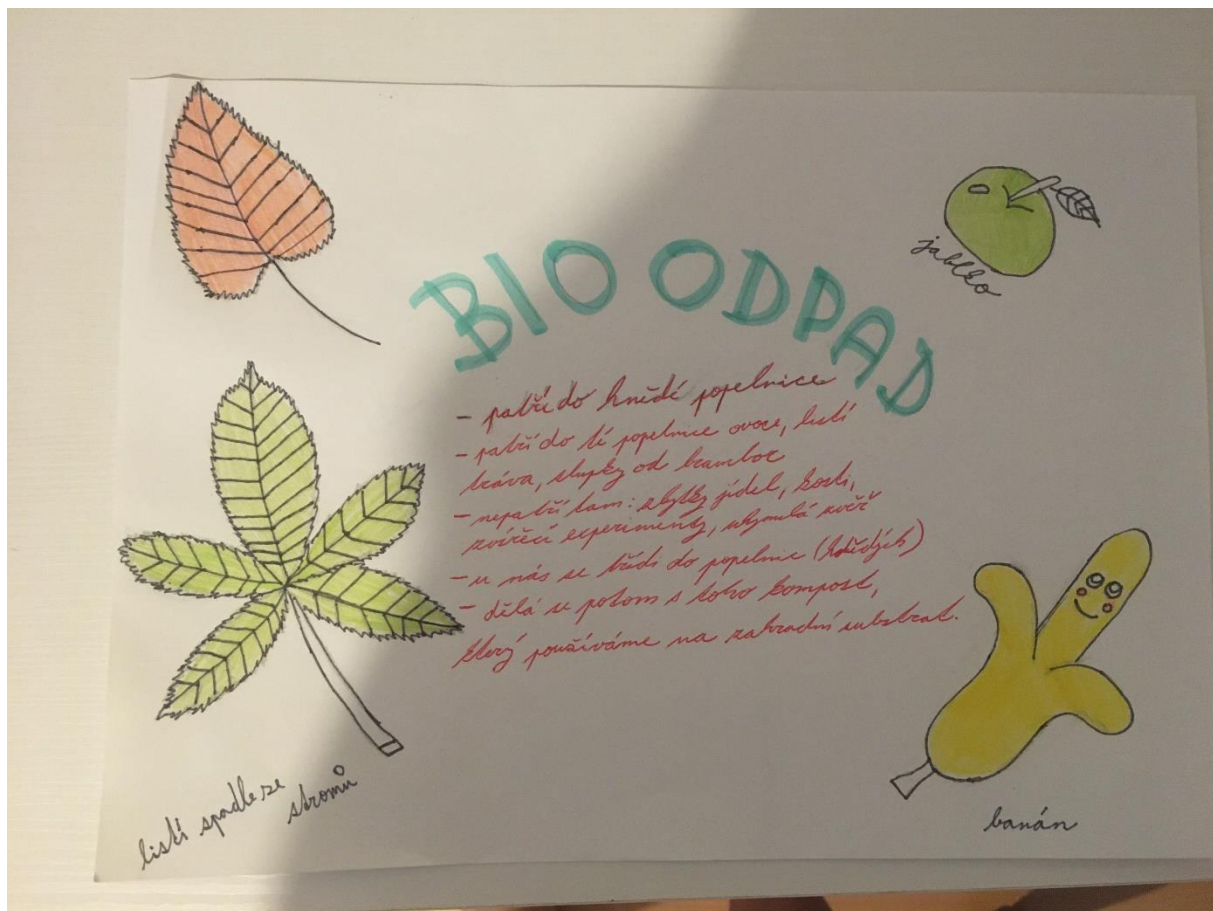 BIO ODPAD
jablko
- patří do hnědé popelnice
- patří do té popelnice ovoce, listí
tráva, slupky od brambor
- nepatří tam: zbytky jídel, kosti,
zvířecí experimenty, uhynulá zvěř
- u nás se třídí do popelnic (hnědých)
- dělá se potom s toho kompost,
který používáme na zahradní substrat.
listí spadle ze
stromů
banán